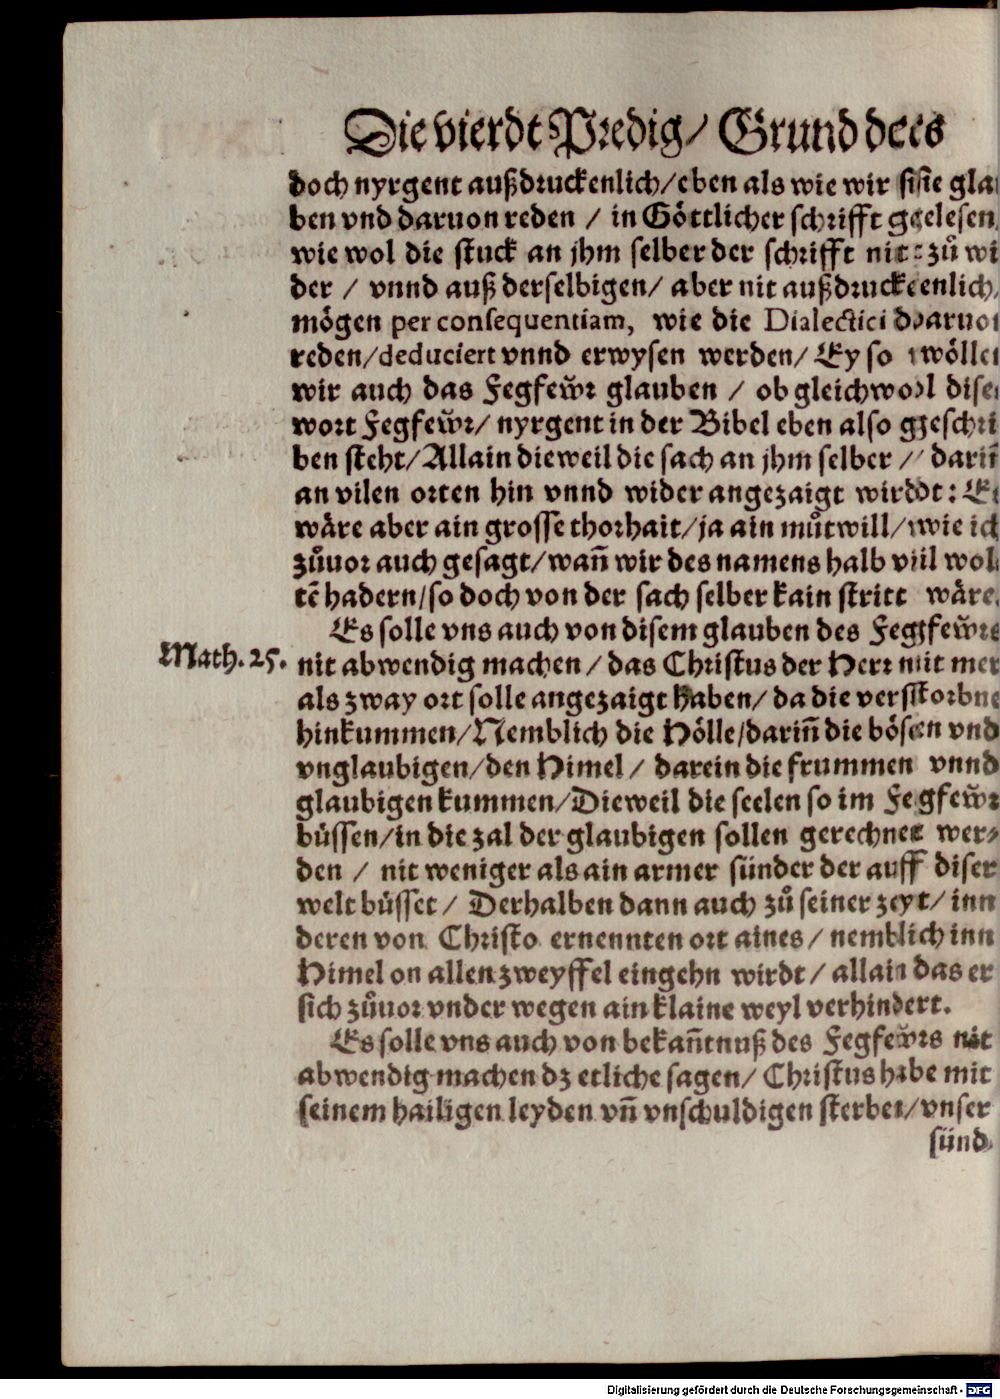 Die vierdt Predig/ Grund dees
doch nyrgent außdruckenlich/eben als wie wir sisie gla
ben vnd daruon reden / in Göttlicher schrifft geelesen
wie wol die stuck an jhm selber der schrifft nit zů wi
der / vnnd auß derselbigen/ aber nit außdruckeenlich,
mögen per consequentiam, wie die Dialectici daruo
reden/deduciert vnnd erwysen werden/ Ey so wölle
wir auch das Fegfewr glauben / ob gleichwol dise
wort Fegfewr/ nyrgent in der Bibel eben also geschri
ben steht/Allain dieweil die sach an jhm selber / darin̄
an vilen orten hin vnnd wider angezaigt wirdt: E
wäre aber ain grosse thorhait/ja ain můtwill/wie ich
zůuor auch gesagt/wan̄ wir des namens halb vil wol
tē hadern/so doch von der sach selber kain stritt wäre.
Es solle vns auch von disem glauben des Fegfewrs
Math. 25. nit abwendig machen / das Christus der Herr nit mer
als zway ort solle angezaigt haben/ da die verstorbne
hinkummen/Nemblich die Hölle/darin̄ die bösen vnd
vnglaubigen/den Himel / darein die frummen vnnd
glaubigen kummen/Dieweil die seelen so im Fegfewr
büssen/in die zal der glaubigen sollen gerechnet wer-
den / nit weniger als ain armer sünder der auff diser
welt büsset / Derhalben dann auch zů seiner zeyt/ inn
deren von Christo ernennten ort aines / nemblich inn
Himel on allen zweyffel eingehn wirdt / allain das er
sich zůuor vnder wegen ain klaine weyl verhindert.
Es solle vns auch von bekan̄tnuß des Fegfewrs nit
abwendig machen dz etliche sagen/ Christus habe mit
seinem hailigen leyden vn̄ vnschuldigen sterben/vnser
sünd
Digitalisierung gefördert durch die Deutsche Forschungsgemeinschaft - DFG